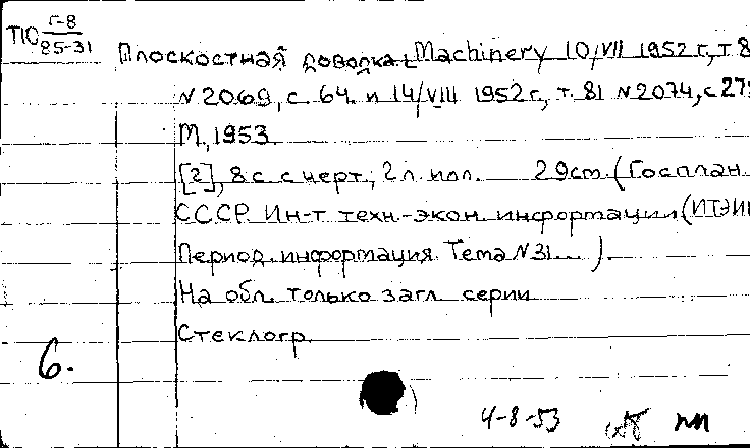 Т10 Г-8
85-31
Плоскостная доводка. Machinery 10/VII 1952 г., т. 8
N 2069, с. 64. и 14/VIII 1952 г., т. 81 N 2074, с. 27
М., 1953.
[2], 8 с. с черт.; 2 л. ил. 29 см. (Госплан
СССР. Ин-т техн.-экон. информации (ИТЭИ
Период. информация. Тема N 31...).
На обл. только загл. серии
Стеклогр.
6.
4-8-53